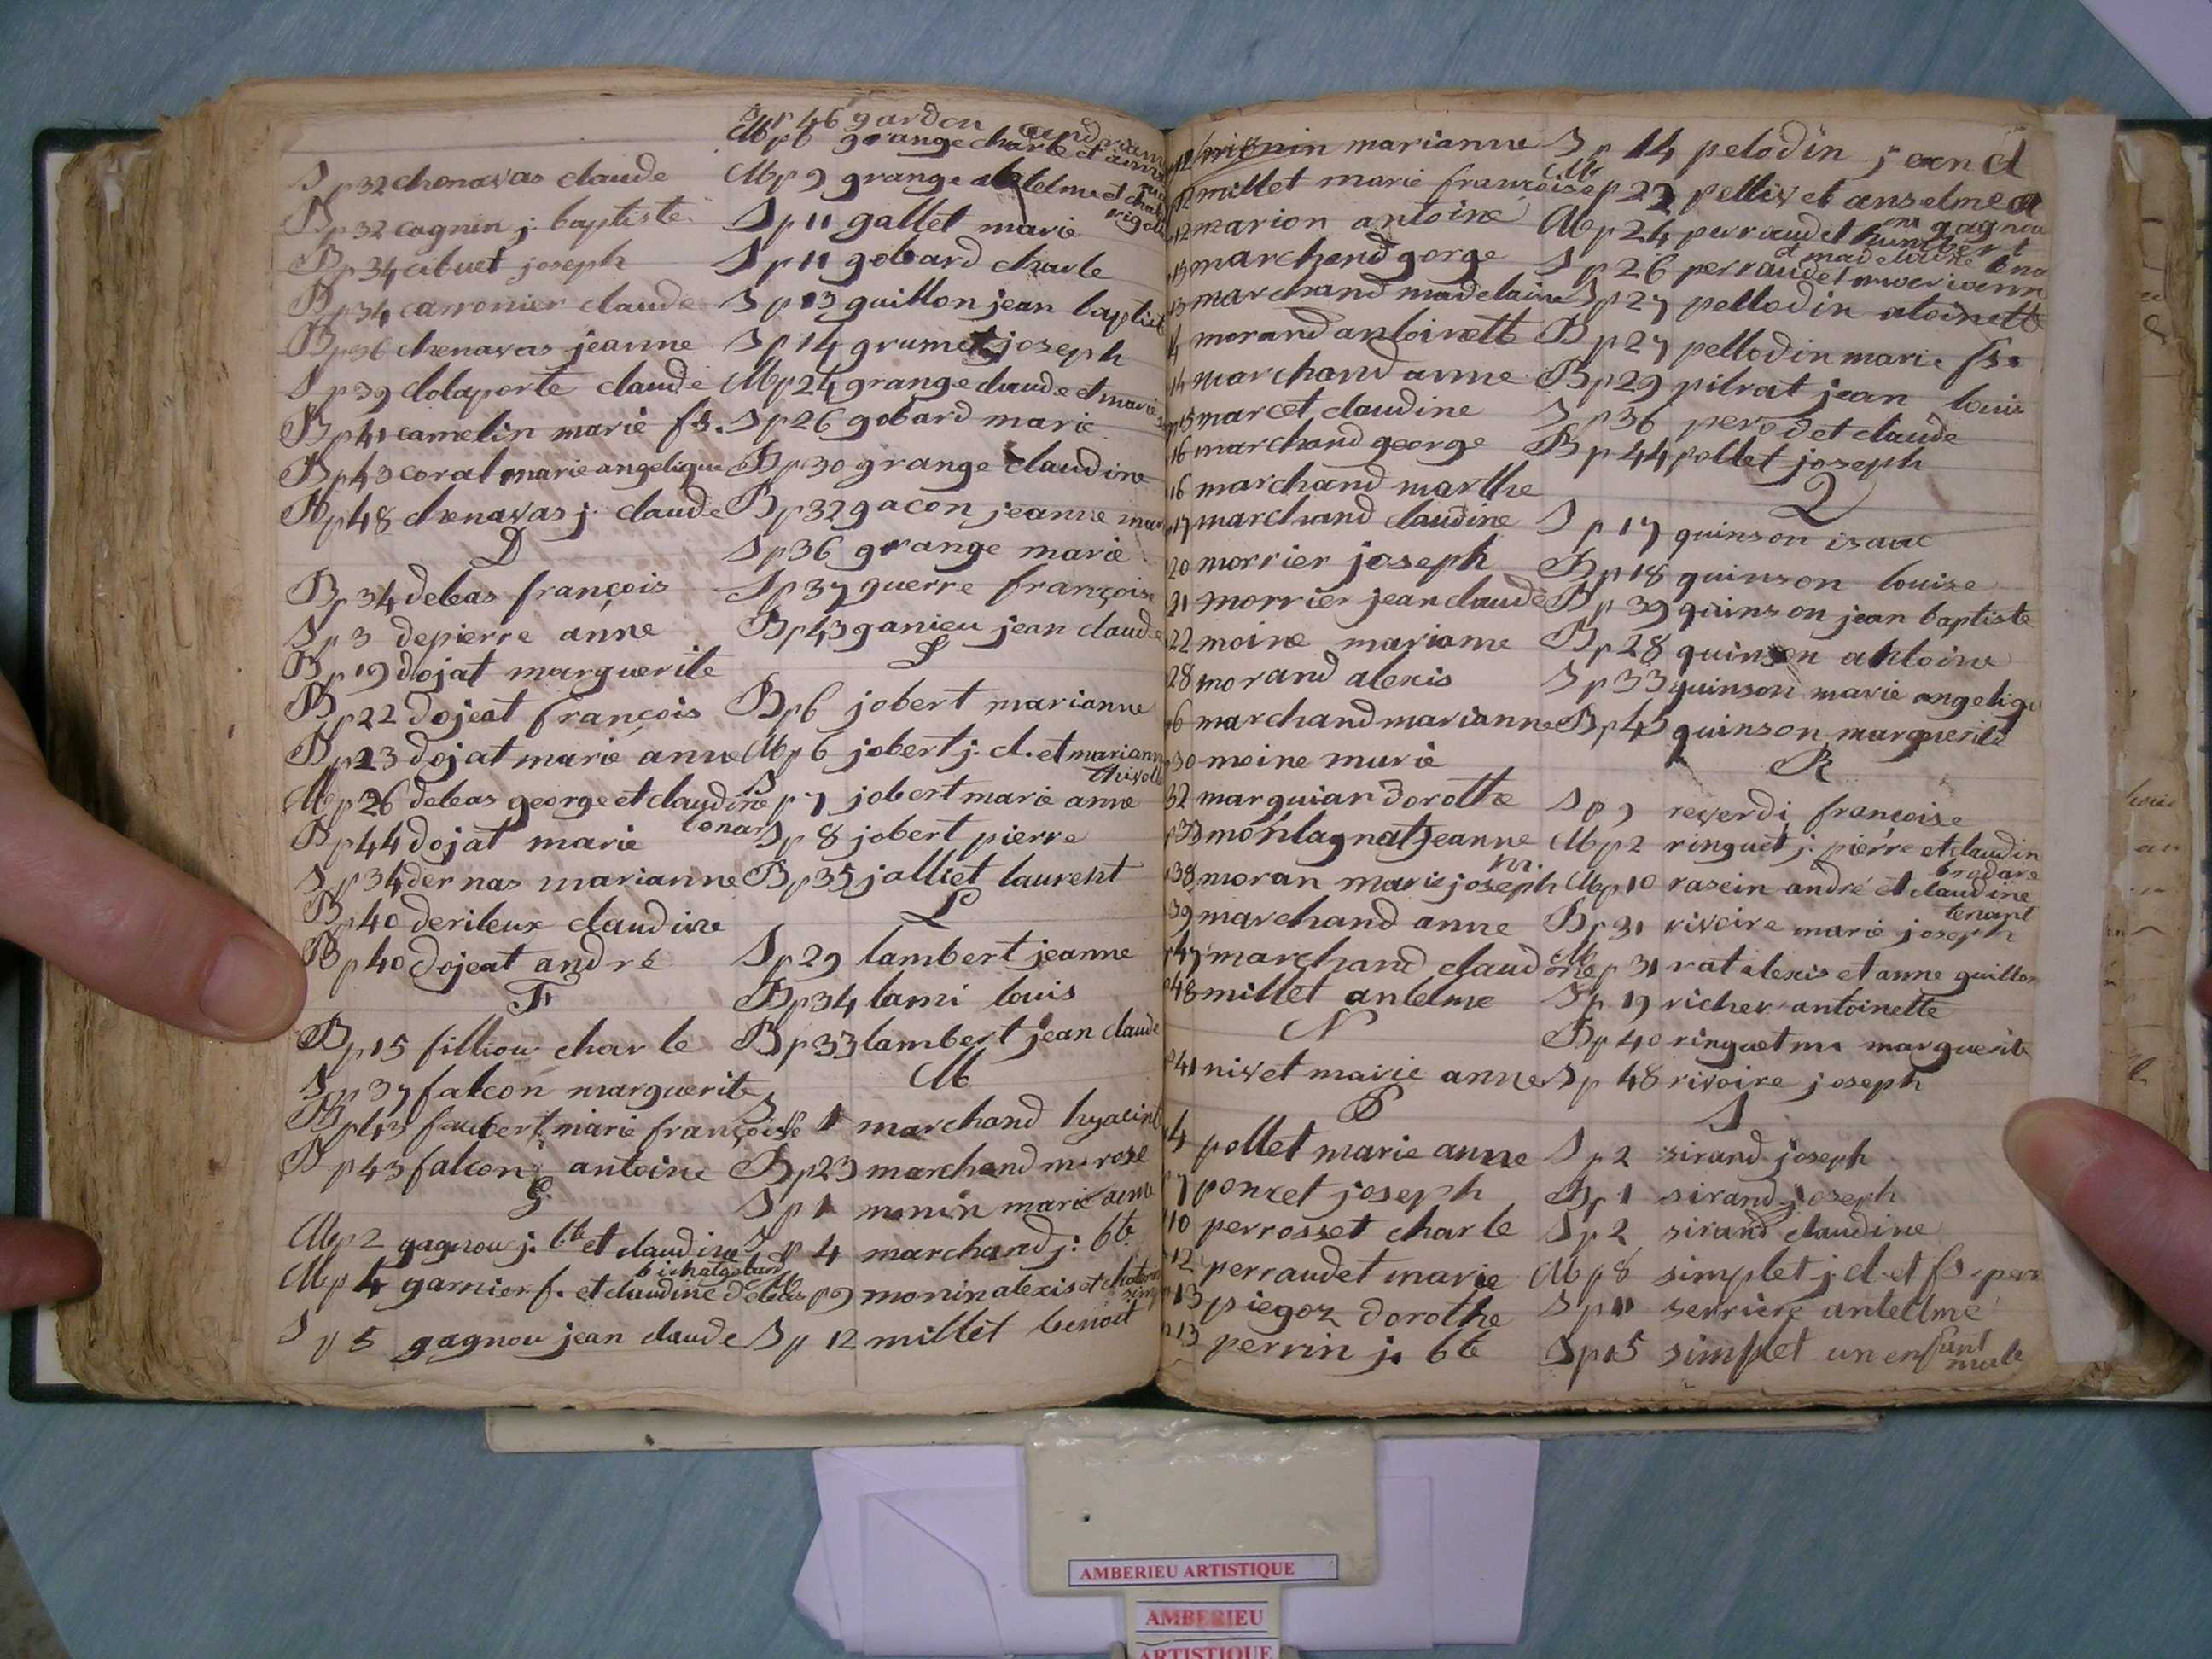 S p 32 chenavas claude
B p 32 cognin j. baptiste
B p 34 cibuet joseph
B p 34 carronier claude
B p 36 chenavas jeanne
S p 39 dolaporte claude
B p 41 camelin marie fs.
B p 43 coral marie angelique
B p 48 chenavas j. claude
D
B p 34 debas françois
S p 3 depierre anne
B p 19 dojat marguerite
B p 22 dojeat françois
B p 23 dojat marie anne
M p 26 debas george et claudine
bonar
B p 44 dojat marie
S p 34 dernas marianne
B p 40 derileux claudine
B p 40 dojeat andré
F
B p 15 filliou charle
S p 37 falcon marguerite
B p 43 faubert marie françoise
B p 43 falcon antoine
G
M p 2 gagnou j. bte et claudine
bichat gobard
M p 4 garnier f. et claudine debas
S p 5 gagnou jean claude
B p 46 gardon
M p 6 grange charle et
M p 9 grange
rigolle
S p 11 gallet marie
S p 11 gobard charle
S p 13 guillon jean baptist
S p 14 grumet joseph
M p 24 grange claude et marie
S p 26 gobard marie
B p 30 grange claudine
B p 32 gacon jeanne mar
S p 36 grange marie
S p 37 guerre françoise
B p 43 ganieu jean claude
J
B p 6 jobert marianne
M p 6 jobert j. cl. et mariann
thivolle
S p 7 jobert marie anne
S p 8 jobert pierre
B p 35 jolliet laurent
L
S p 29 lambert jeanne
B p 34 lami louis
B p 33 lambert jean claude
M
S 1 marchand hyacint
B p 23 marchand m. rose
S p 1 monin marie anne
S p 4 marchand j. bte
M p 9 monin alexis et
S p 12 millet benoit
12 marianne
12 millet marie françoise
12 marion antoine
13 marchand gorge
13 marchand madelaine
4 morand antoinette
14 marchand anne
p 15 marcet claudine
16 marchand george
16 marchand marthe
p 17 marchand claudine
20 morrier joseph
21 morrier jean claude
22 moine marianne
28 morand alexis
6 marchand marianne
30 moine marie
32 marguian dorothe
p 33 montagnat jeanne
m.
38 moran marie joseph
39 marchand anne
p 47 marchand claudine
p 48 millet antelme
N
p 41 nivet marie anne
P
4 pollet marie anne
7 poncet joseph
10 perrosset charle
12 perraudet marie
13 piegoz dorothe
13 perrin j. bte
S p 14 pelodin jean cl
M p 22 pellivet anselme
m. gagnou
M p 24 perraudet humbert
et madelaine
S p 26 perraudet
S p 27 pellodin atoinette
B p 27 pellodin marie fse
B p 29 pilrat jean louis
S p 36 perodet claude
B p 44 pollet joseph
Q
S p 17 quinson isaac
B p 18 quinson louise
B p 39 quinson jean baptiste
B p 28 quinson antoine
S p 33 quinson marie angeliqu
B p 45 quinson marguerite
R
S p 9 reverdi françoise
M p 2 ringuet j. pierre et claudin
brodare
M p 10 rasein andré et claudine
tenant
B p 31 rivoire marie joseph
M p 31 rat alexis et anne guillon
S p 19 richer antoinette
B p 40 ringuet m. marguerite
S p 48 rivoire joseph
S
S p 2 sirand joseph
B p 1 sirand joseph
S p 2 sirand claudine
M p 8 simplet j. cl. et fs. perr
S p 11 serriere antelme
S p 15 simplet un enfant
male
AMBERIEU ARTISTIQUE
AMBERIEU
ARTISTIQUE